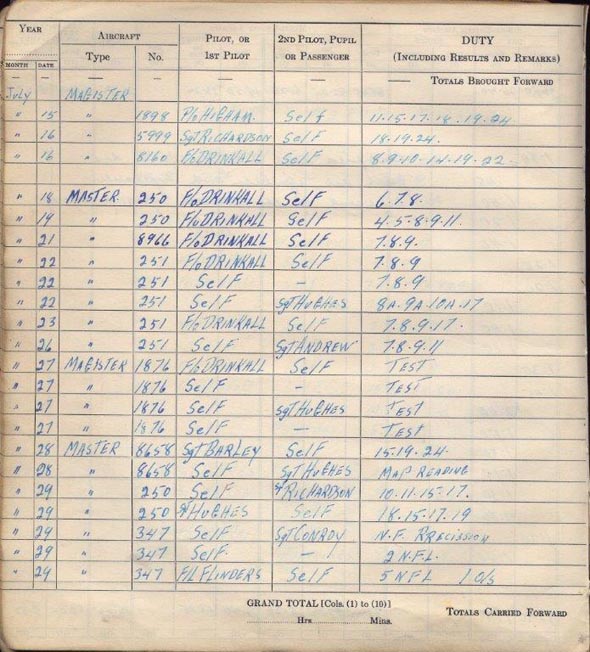 YEAR AIRCRAFT PILOT, OR 2ND PILOT, PUPIL DUTY
MONTH DATE Type No. 1ST PILOT OR PASSENGER (INCLUDING RESULTS AND REMARKS)
— — — — — — — TOTALS BROUGHT FORWARD
July MAGISTER
" 15 " 1898 P/o HIGHAM. Self 11.15.17.18.19.24
" 16 " 5999 Sgt RICHARDSON Self 18.19.24.
" 16 " 8160 F/o DRINKALL Self 8.9.10.14.19.22.
" 18 MASTER. 250 F/o DRINKALL Self 6.7.8.
" 19 " 250 F/o DRINKALL Self 4.5.8.9.11.
" 21 " 8966 F/o DRINKALL Self 7.8.9.
" 22 " 251 F/o DRINKALL Self 7.8.9
" 22 " 251 Self — 7.8.9
" 22 " 251 Self Sgt HUGHES 8A.9A.10A.17
" 23 " 251 F/o DRINKALL Self 7.8.9.17.
" 26 " 251 Self Sgt ANDREW 7.8.9.11
" 27 MAGISTER 1876 F/o DRINKALL Self TEST
" 27 " 1876 Self — TEST
" 27 " 1876 Self Sgt HUGHES TEST
" 27 " 1876 Self — TEST
" 28 MASTER 8658 Sgt BARLEY Self 15.19.24.
" 28 " 8658 Self Sgt HUGHES MAP READING
" 29 " 250 Self Sgt RICHARDSON 10.11.15.17.
" 29 " 250 Sgt HUGHES Self 18.15.17.19
" 29 " 347 Self Sgt CONROY N.F. PRECISSION
" 29 " 347 Self. — 2 N.F.L.
" 29 " 347 F/L FLINDERS Self 5 NFL 1 o/s
GRAND TOTAL [Cols. (1) to (10)]
Hrs Mins. TOTALS CARRIED FORWARD